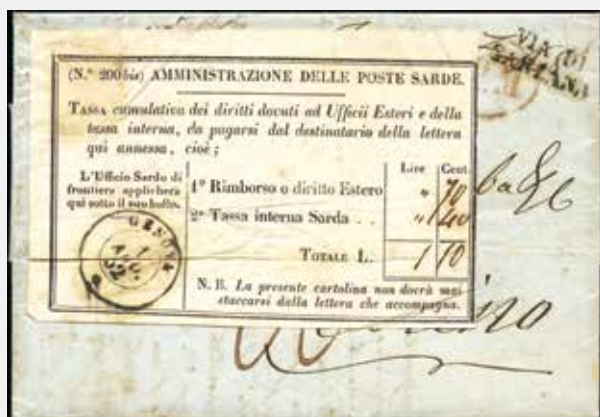 VIA DI
SARZANA
(N.º 200 bis) AMMINISTRAZIONE DELLE POSTE SARDE.
TASSA cumulativa dei diritti dovuti ad Ufficii Esteri e della
tassa interna, da pagarsi dal destinatario della lettera
qui annessa, cioè;
L'Ufficio Sardo di
frontiera applicherà
qui sotto il suo bollo.
Lire Cent.
1º Rimborso o diritto Estero " 70
2º Tassa interna Sarda . . " 40
TOTALE L. 1 10
GENOVA
1
52
N. B. La presente cartolina non dovrà mai
staccarsi dalla lettera che accompagna.